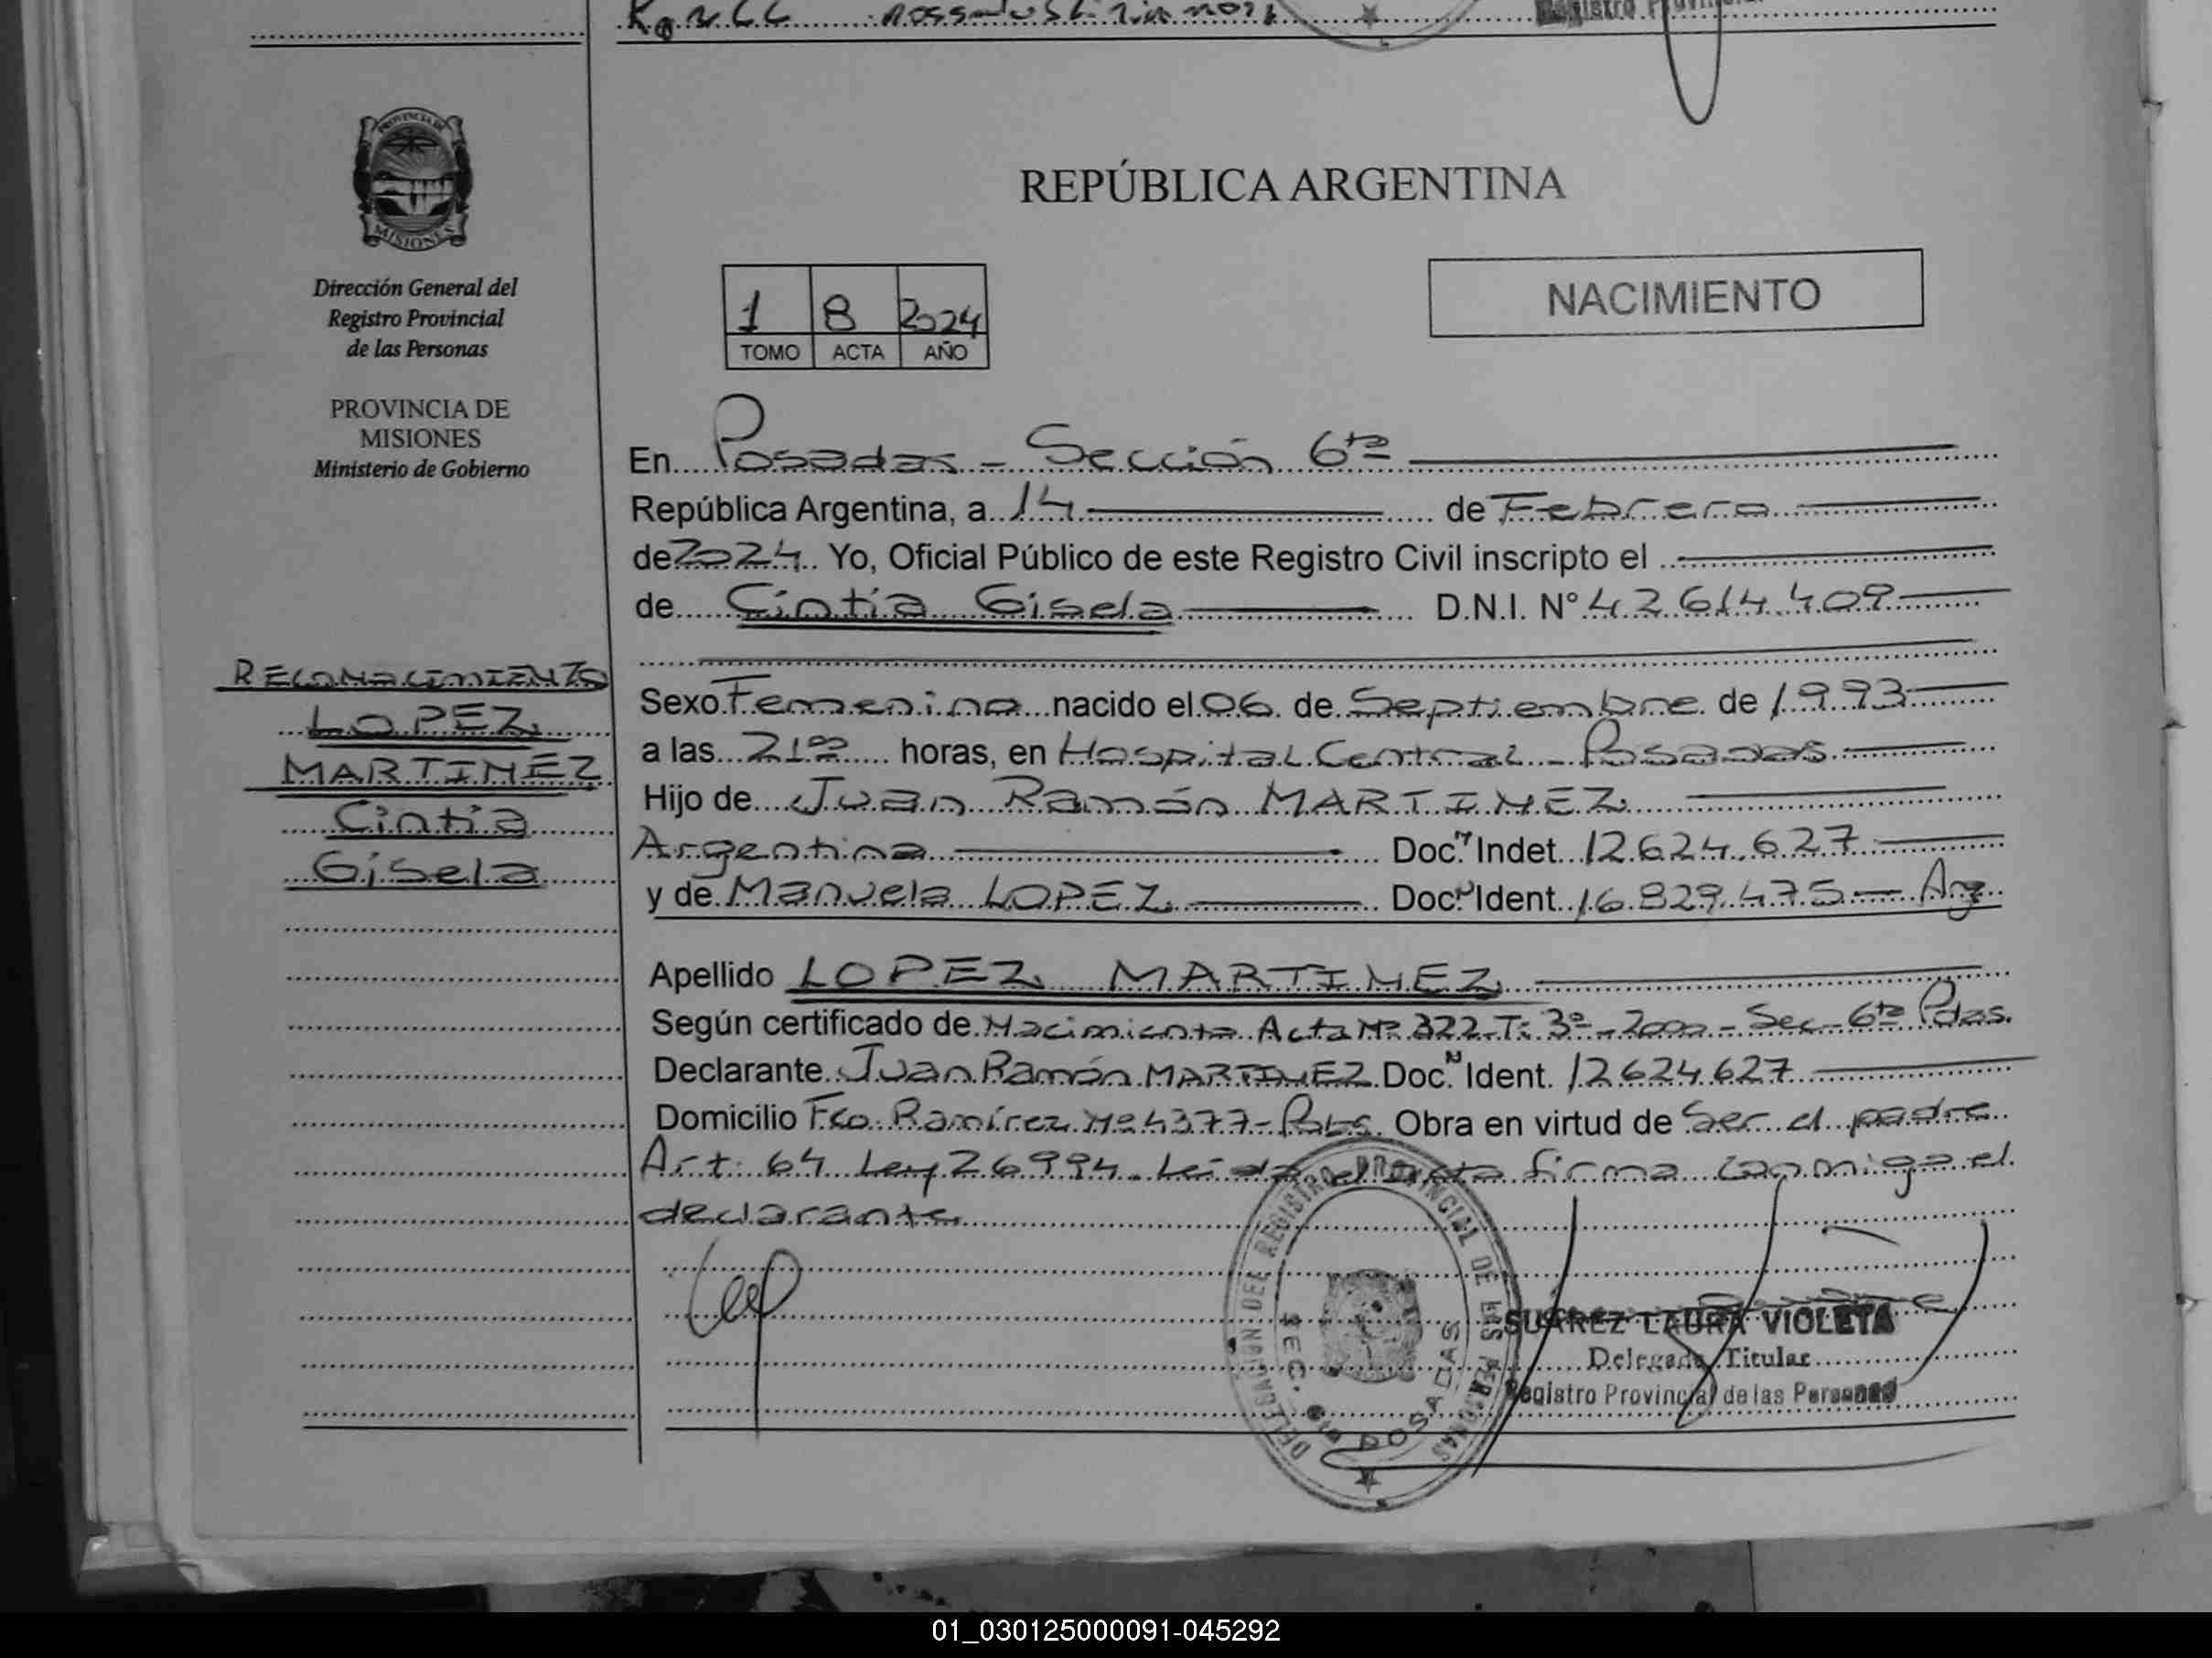 PROVINCIA DE
MISIONES
Dirección General del
Registro Provincial
de las Personas
PROVINCIA DE
MISIONES
Ministerio de Gobierno
RECONOCIMIENTO
LOPEZ
MARTINEZ
Cintia
Gisela
REPÚBLICA ARGENTINA
1 8 2024
TOMO ACTA AÑO
NACIMIENTO
En Posadas - Sección 6ta
República Argentina, a 14 de Febrero
de 2024 Yo, Oficial Público de este Registro Civil inscripto el
de Cintia Gisela D.N.I. N° 42.614.409
Sexo Femenino nacido el 06 de Septiembre de 1993
a las 21 00 horas, en Hospital Central - Posadas
Hijo de Juan Ramón MARTINEZ
Argentina Doc. Indet. 12.624.627
y de Manuela LOPEZ Doc. Ident. 16.829.475 - Arg
Apellido LOPEZ MARTINEZ
Según certificado de Nacimiento Acta Nº 322-T: 3º - 2000 - Sec - 6ta Pdas.
Declarante Juan Ramón MARTINEZ Doc. Ident. 12624627
Domicilio Fco. Ramírez Nº 4377 - Obra en virtud de Ser el padre
Art: 64 Ley 26994. Leída el acta firma conmigo el
declarante
DELEGACION DEL REGISTRO PROVINCIAL DE LAS PERSONAS
SEC. 6ta POSADAS
SUAREZ LAURA VIOLETA
Delegada Titular
Registro Provincial de las Personas
01_030125000091-045292